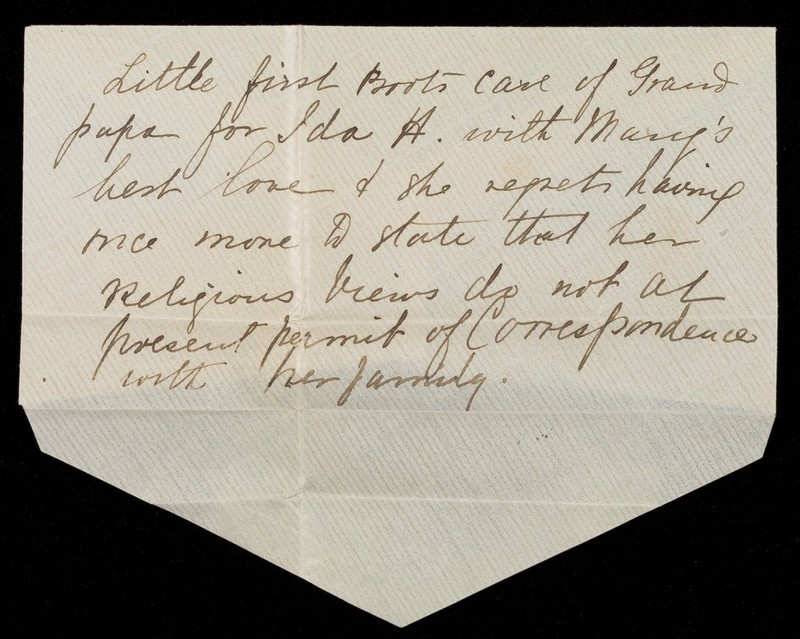 Little first Boots care of Grand
papa for Ida H. with Mary's
best love & she regrets having
once more to state that her
Religious Views do not at
present permit of Correspondence
with her family.